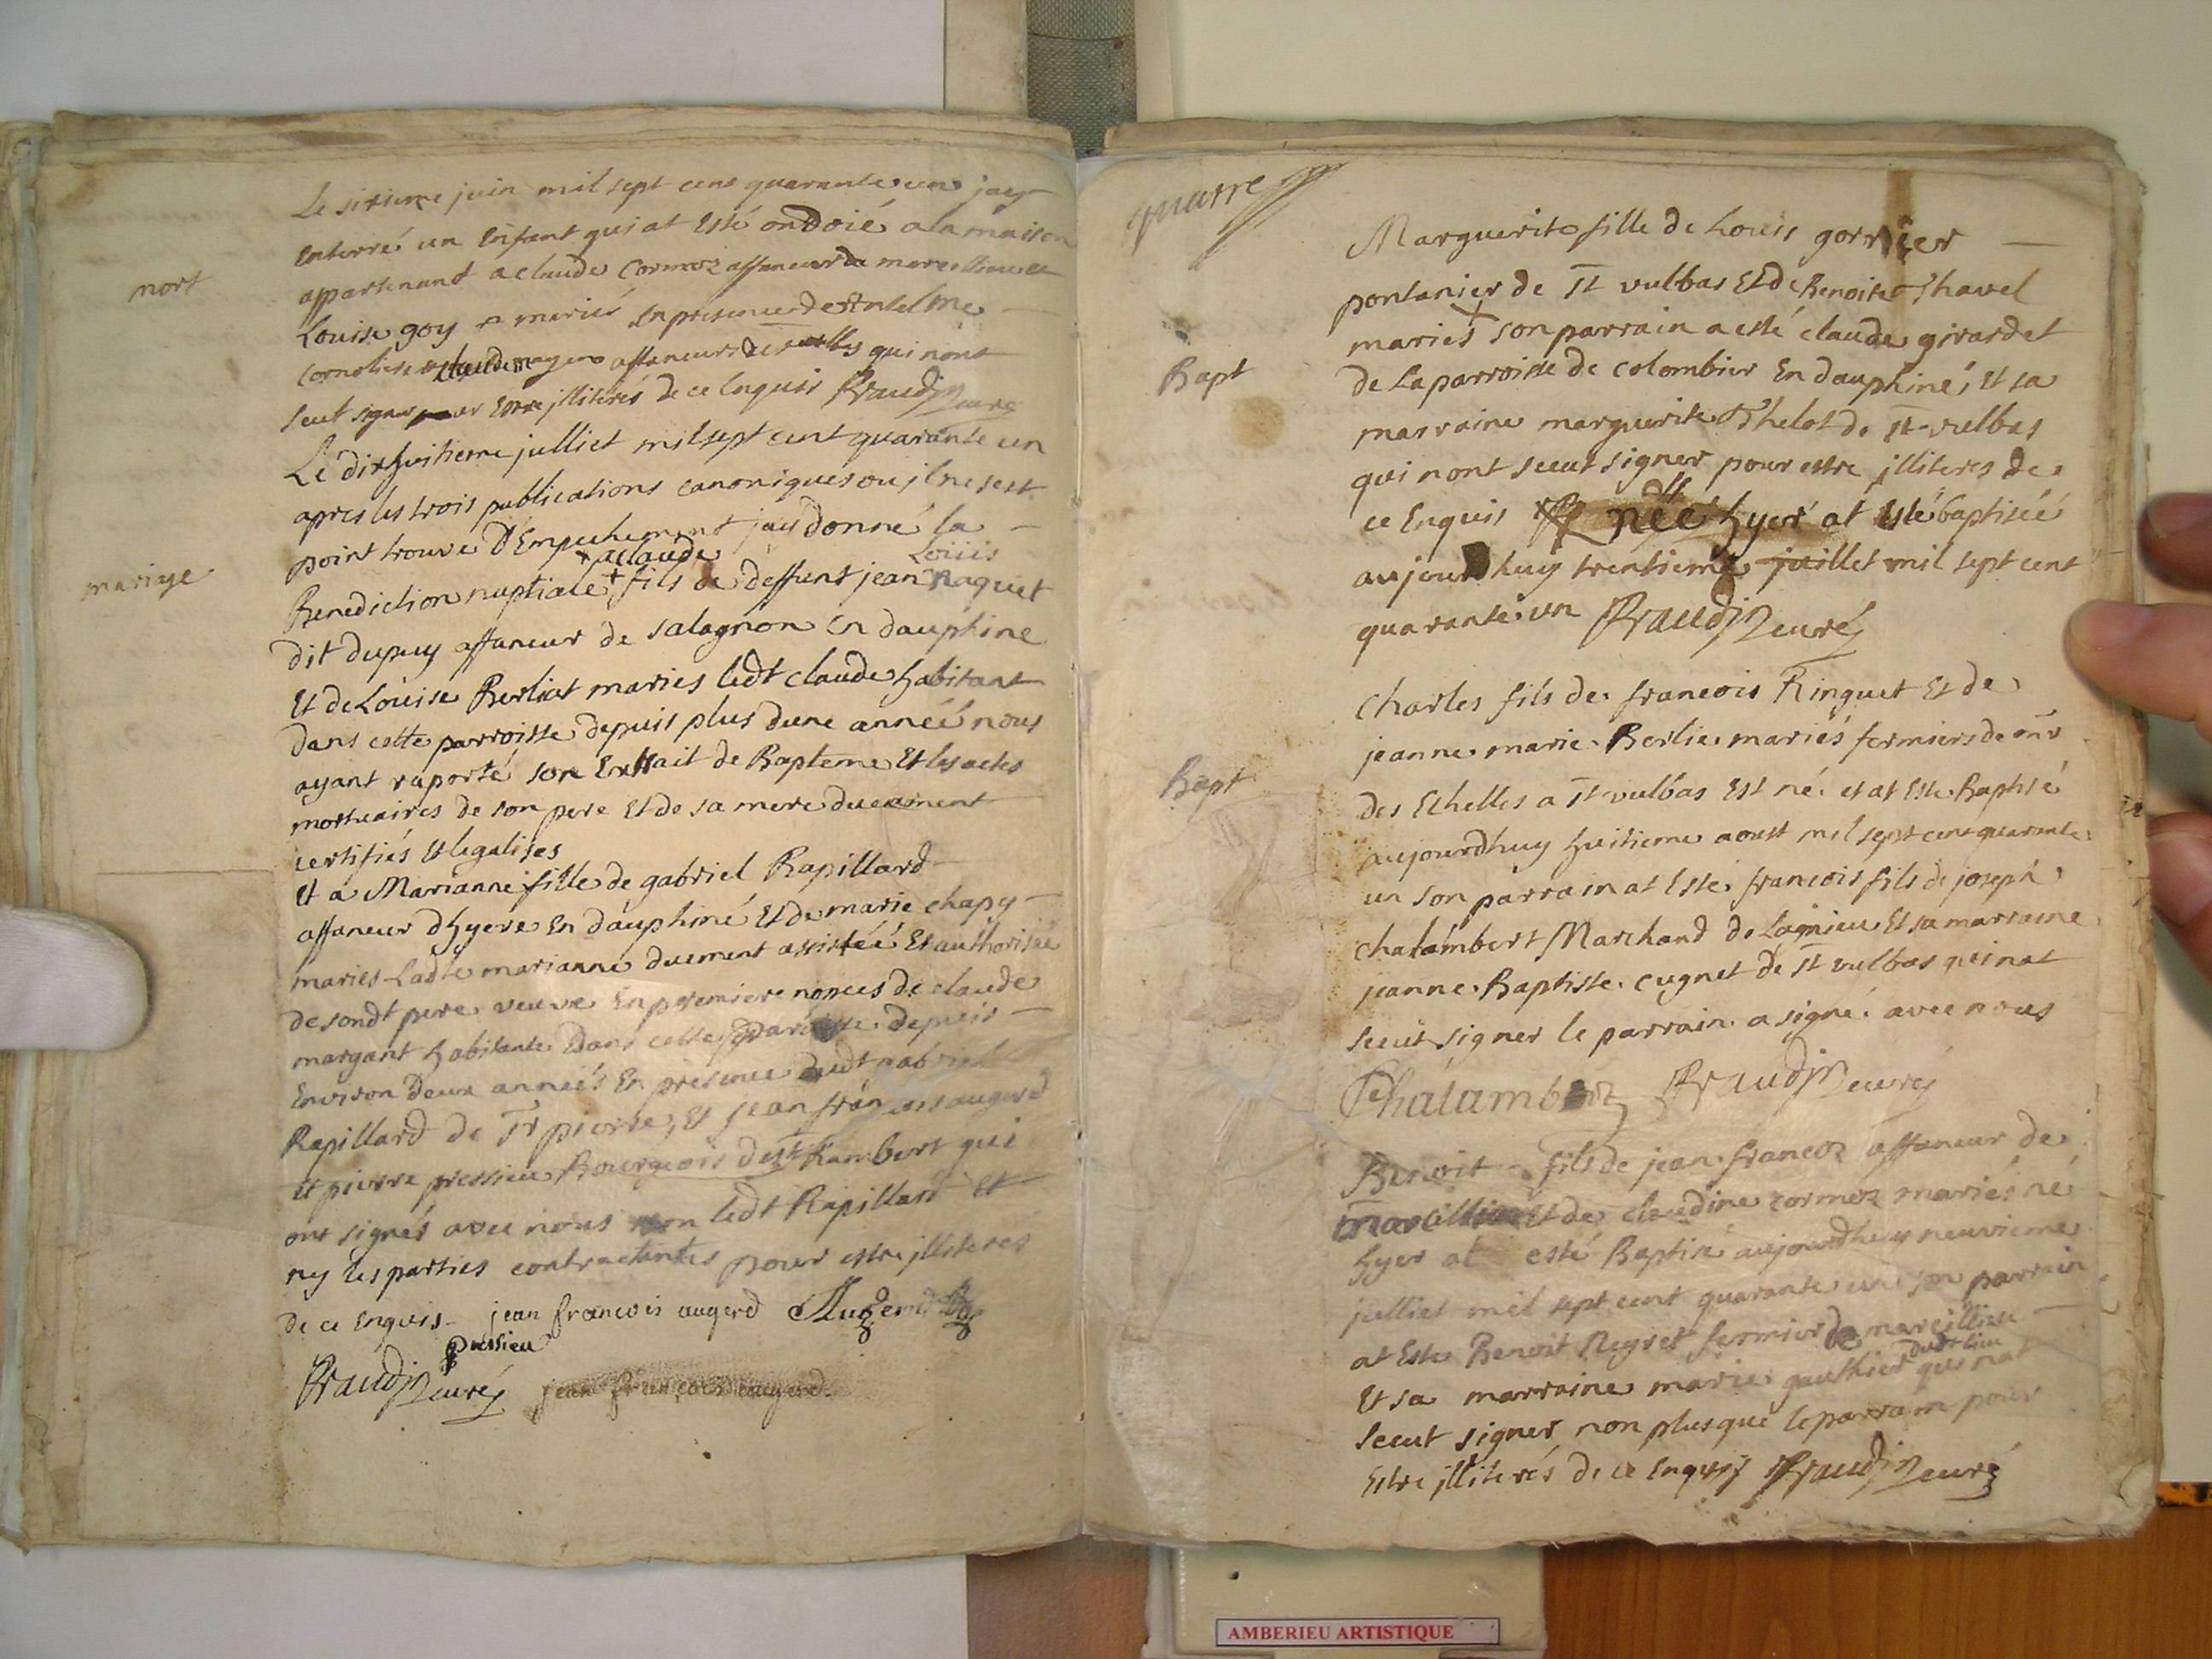 Le sixieme juin mil sept cens quarante un jay
mort
Enterré un Enfant qui at Esté ondoié a la maison
appartenant a claude Cormoz affaneur de
Louise goy mariés En presence de Antelme
affaneurs qui nont
seut signer pour Estre jlliterés de ce Enquis Fraudin curé
Le dixhuitieme julliet mil sept cent quarante un
apres les trois publications canoniques ou jl ne sest
point trouve D'Empechement jay donné la
mariage
+ a claude Louis
Benediction nuptiale + fils de deffunt jean Raquet
dit dupuy affaneur de salagnon En dauphine
Et de Louise Berliat maries ledt claude habitant
dans cette parroisse depuis plus dune année nous
ayant raporté son Extrait de Bapteme Et les actes
mortuaires de son pere Et de sa mere duement
certifiés Et legalises
Et a Marianne fille de gabriel Rapillard
affaneur dhyere En dauphiné Et de marie chapy
maries Ladte marianne duement assistéé Et authorisée
de sondt pere veuve En premiere nopces de claude
margant habitante Dans cette parroisse depuis
Environ deux annéés En presence dudt gabriel
Rapillard de St pierre, Et jean francois augerd
et pierre pressieu Bourgeois de st Rambert qui
ont signés avec nous non ledt Rapillard Et
ny les parties contractantes pour estre jlliteres
de ce Enquis jean francois augerd Augerd
pressieu
Fraudin curé jean françois augerd.
quatre
Marguerite fille de Louis gorricer
pontanier de St vulbas Et de Benoite Thavel
mariés son parrain a esté claude girardet
Bapt
de La parroisse de colombier En dauphiné, Et sa
marraine marguerite Thelot de St vulbas
qui nont sceut signer pour estre jlliteres de
ce Enquis née hyer at Esté baptiséé
aujourdhuy trentieme juillet mil sept cent
quarante un Fraudin curé
Charles fils de francois Ringuet Et de
jeanne marie Berlie mariés fermiers de mr
Bapt
des Echelles a St vulbas Est né et at Esté Baptisé
aujourdhuy huitieme aoust mil sept cent quarante
un son parrain at Esté francois fils de joseph
chalambert Marchand de Lagnieu Et sa marraine
jeanne Baptiste cugnet de St vulbas qui nat
sceut signer le parrain a signé avec nous
Chalambert Fraudin curé
Benoit fils de jean francoz affaneur de
marcillieu Et de claudine cormoz mariés né
hyer at esté Baptisé aujourdhuy neuvieme
julliet mil sept cent quarante un son parrain
at Esté Benoit Neyret fermier de marcillieu
dudt lieu
Et sa marraine marie gauthier qui nat
sceut signer non plus que le parrain pour
Estre jlliterés de ce Enquis Fraudin curé
AMBERIEU ARTISTIQUE